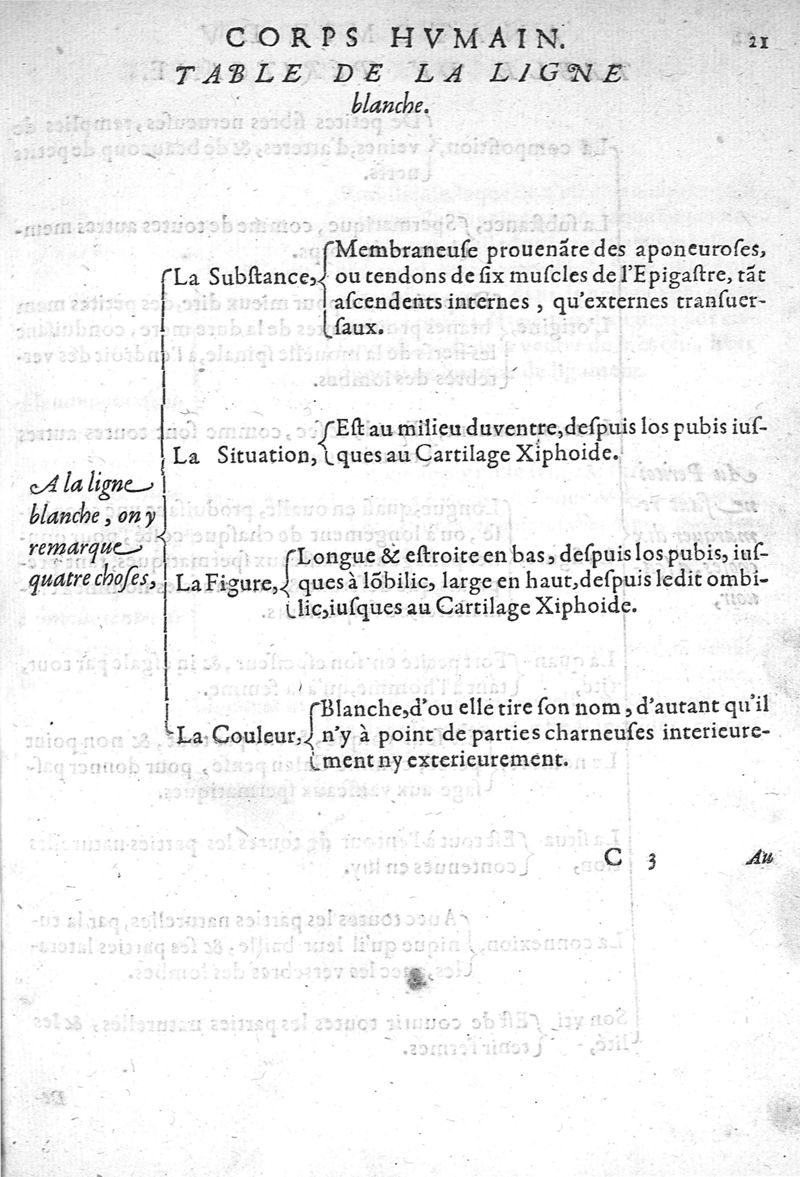 CORPS HVMAIN. 21
TABLE DE LA LIGNE
blanche.
A la ligne
blanche, on y
remarque
quatre choſes,
La Subſtance,
Membraneuſe prouenãte des aponeuroſes,
ou tendons de ſix muſcles de l'Epigaſtre, tãt
aſcendents internes, qu'externes tranſuer-
ſaux.
La Situation,
Eſt au milieu duventre, deſpuis los pubis iuſ-
ques au Cartilage Xiphoide.
La Figure,
Longue & eſtroite en bas, deſpuis los pubis, iuſ-
ques à lõbilic, large en haut, deſpuis ledit ombi-
lic, iuſques au Cartilage Xiphoide.
La Couleur,
Blanche, d'ou elle tire ſon nom, d'autant qu'il
n'y à point de parties charneuſes interieure-
ment ny exterieurement.
C 3 Au